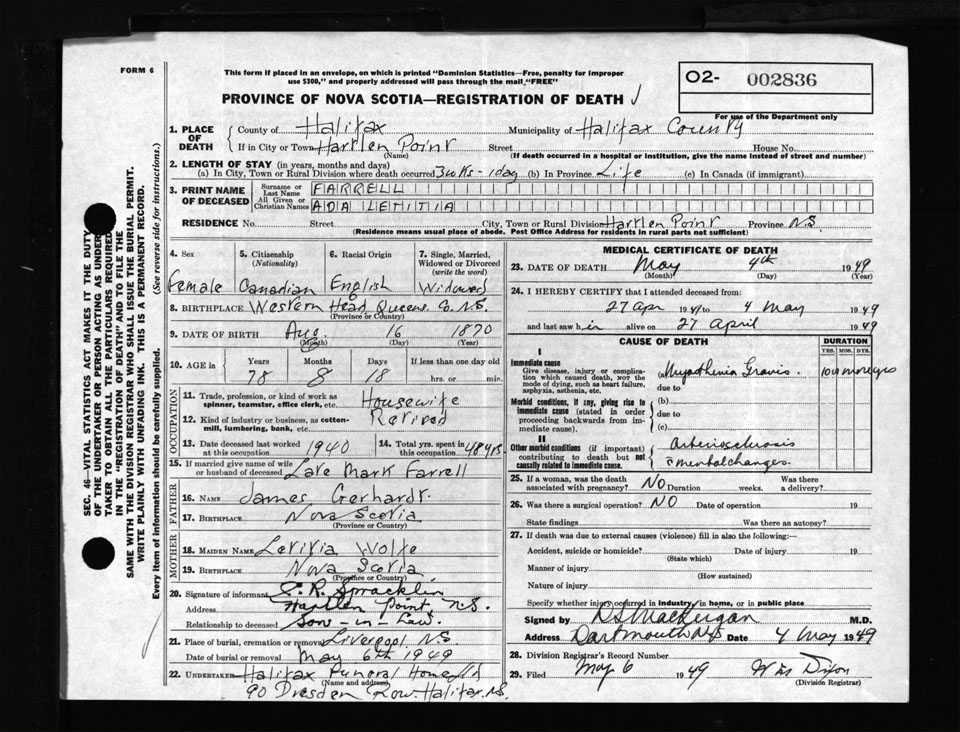 FORM 6
This form if placed in an envelope, on which is printed "Dominion Statistics—Free, penalty for improper
use $300," and properly addressed will pass through the mail "FREE"
O2- 002836
For use of the Department only
PROVINCE OF NOVA SCOTIA—REGISTRATION OF DEATH
1. PLACE OF DEATH { County of Halifax Municipality of Halifax County
If in City or Town Hartlen Point (Name) Street House No.
(If death occurred in a hospital or institution, give the name instead of street and number)
2. LENGTH OF STAY (in years, months and days)
(a) In City, Town or Rural Division where death occurred 3 wks - 1 day (b) In Province Life (c) In Canada (if immigrant)
3. PRINT NAME OF DECEASED { Surname or Last Name FARRELL
All Given or Christian Names ADA LETITIA
RESIDENCE No. Street City, Town or Rural Division Hartlen Point Province N.S.
(Residence means usual place of abode. Post Office Address for residents in rural parts not sufficient)
4. Sex Female
5. Citizenship (Nationality) Canadian
6. Racial Origin English
7. Single, Married, Widowed or Divorced (write the word) Widowed
8. BIRTHPLACE Western Head Queens Co. N.S.
(Province or Country)
9. DATE OF BIRTH Aug 16 1870
(Month) (Day) (Year)
10. AGE in { Years Months Days If less than one day old
78 8 18 hrs. or min.
OCCUPATION
11. Trade, profession, or kind of work as spinner, teamster, office clerk, etc. Housewife
12. Kind of industry or business, as cotton-mill, lumbering, bank, etc. Retired
13. Date deceased last worked at this occupation 1940
14. Total yrs. spent in this occupation 48 yrs
15. If married give name of wife or husband of deceased Late Mark Farrell
FATHER
16. NAME James Gerhardt
17. BIRTHPLACE Nova Scotia
(Province or Country)
MOTHER
18. MAIDEN NAME Letitia Wolfe
19. BIRTHPLACE Nova Scotia
(Province or Country)
20. Signature of informant E. R. Spracklin
Address Hartlen Point, N.S.
Relationship to deceased Son-in-Law.
21. Place of burial, cremation or removal Liverpool, N.S
Date of burial or removal May 6th 1949
22. UNDERTAKER Halifax Funeral Home
(Name and address)
90 Dresden Row Halifax, N.S.
MEDICAL CERTIFICATE OF DEATH
23. DATE OF DEATH May 4th 1949
(Month) (Day) (Year)
24. I HEREBY CERTIFY that I attended deceased from:
27 Apr 19 to 4 May 1949
and last saw her alive on 27 April 1949
CAUSE OF DEATH DURATION
YRS. MOS. DYS.
I
Immediate cause
Give disease, injury or complication which caused death, NOT the mode of dying, such as heart failure, asphyxia, asthenia, etc.
(a) Myasthenia Gravis. 10 or more yrs
due to
Morbid conditions, if any, giving rise to immediate cause (stated in order proceeding backwards from immediate cause).
(b)
due to
(c)
II
Other morbid conditions (if important) contributing to death but not causally related to immediate cause.
arteriosclerosis
c̄ mental changes.
25. If a woman, was the death associated with pregnancy? No Duration weeks. Was there a delivery?
26. Was there a surgical operation? NO Date of operation 19
State findings Was there an autopsy?
27. If death was due to external causes (violence) fill in also the following:—
Accident, suicide or homicide? Date of injury 19
(State which)
Manner of injury
(How sustained)
Nature of injury
Specify whether injury occurred in industry, in home, or in public place
Signed by MacKeigan M.D.
Address Dartmouth N.S Date 4 May 1949
28. Division Registrar's Record Number
29. Filed May 6 1949 Wm Dixon
(Division Registrar)
SEC. 46—VITAL STATISTICS ACT MAKES IT THE DUTY
OF THE UNDERTAKER OR PERSON ACTING AS UNDER-
TAKER TO OBTAIN ALL THE PARTICULARS REQUIRED
IN THE "REGISTRATION OF DEATH" AND TO FILE THE
SAME WITH THE DIVISION REGISTRAR WHO SHALL ISSUE THE BURIAL PERMIT.
WRITE PLAINLY WITH UNFADING INK. THIS IS A PERMANENT RECORD.
Every item of information should be carefully supplied. (See reverse side for instructions.)